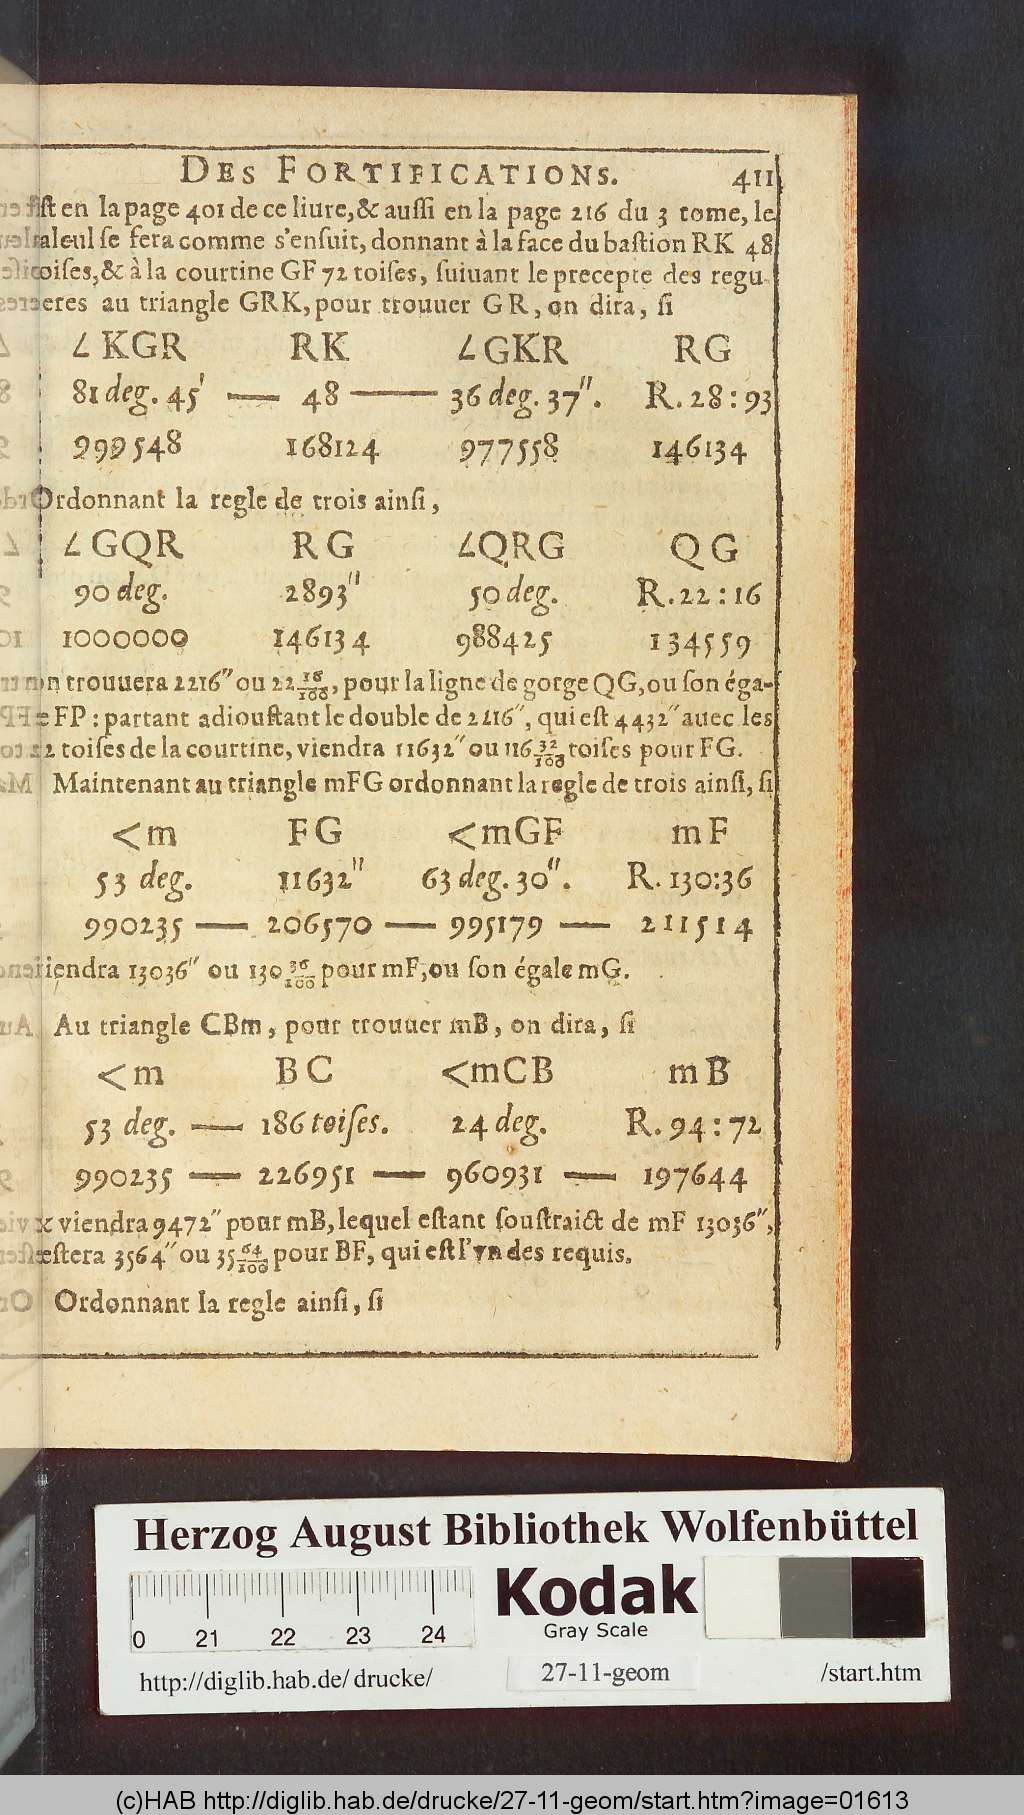 DES FORTIFICATIONS. 411
en la page 401 de ce liure, & aussi en la page 216 du 3 tome, le
se fera comme s'ensuit, donnant à la face du bastion RK 48
toises, & à la courtine GF 72 toises, suiuant le precepte des regu-
au triangle GRK, pour trouuer GR, on dira, si
∠KGR RK ∠GKR RG
81 deg. 45' — 48 — 36 deg. 37''. R. 28:93
999548 168124 977558 146134
Ordonnant la regle de trois ainsi,
∠GQR RG ∠QRG QG
90 deg. 2893'' 50 deg. R. 22:16
1000000 146134 988425 134559
on trouuera 2216'' ou 22 16/100, pour la ligne de gorge QG, ou son éga-
FP: partant adioustant le double de 2216'', qui est 4432'' auec les
toises de la courtine, viendra 11632'' ou 116 32/100 toises pour FG.
Maintenant au triangle mFG ordonnant la regle de trois ainsi, si
<m FG <mGF mF
53 deg. 11632'' 63 deg. 30''. R. 130:36
990235 — 206570 — 995179 — 211514
viendra 13036'' ou 130 36/100 pour mF, ou son égale mG.
Au triangle CBm, pour trouuer mB, on dira, si
<m BC <mCB mB
53 deg. — 186 toises. 24 deg. R. 94:72
990235 — 226951 — 960931 — 197644
viendra 9472'' pour mB, lequel estant soustraict de mF 13036'',
restera 3564'' ou 35 64/100 pour BF, qui est l'vn des requis.
Ordonnant la regle ainsi, si
Herzog August Bibliothek Wolfenbüttel
0 21 22 23 24
Kodak
Gray Scale
http://diglib.hab.de/drucke/ 27-11-geom /start.htm
(c)HAB http://diglib.hab.de/drucke/27-11-geom/start.htm?image=01613